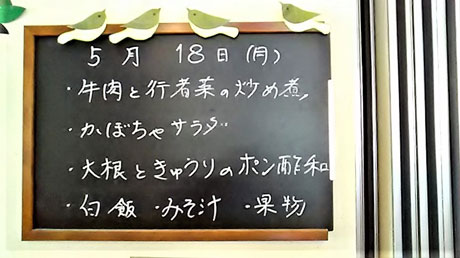 5月 18日(月)
・牛肉と行者菜の炒め煮
・かぼちゃサラダ
・大根ときゅうりのポン酢和
・白飯 ・みそ汁 ・果物